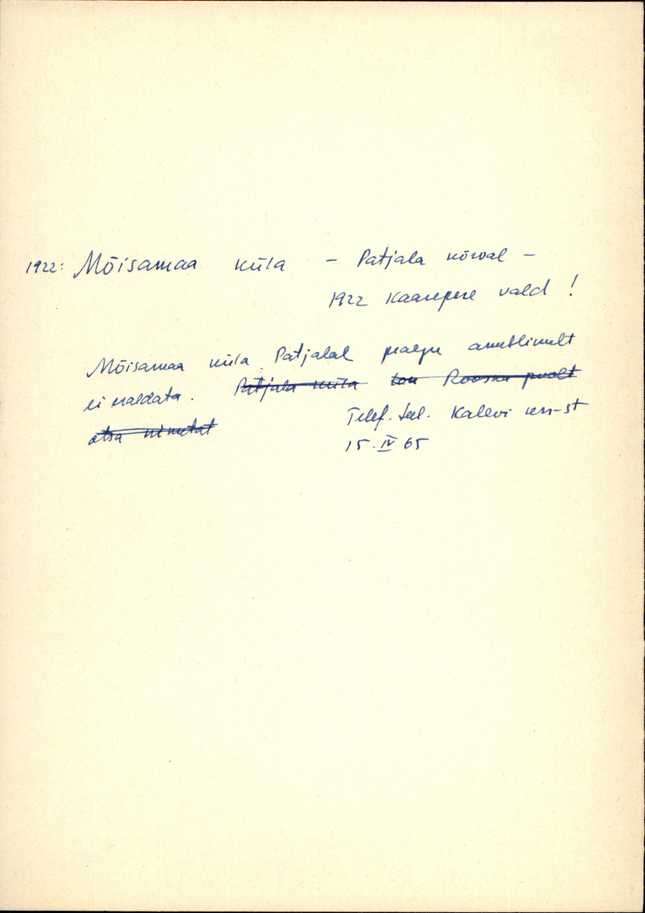 1922: Mõisamaa küla – Patjala kõrval –
1922 Kaarepere vald !
Mõisamaa küla Patjalal praegu ametlikult
ei eraldata. Patjala küla Roosna poolt
otsa nimetat Telef. tel. Kalevi
15. IV 65